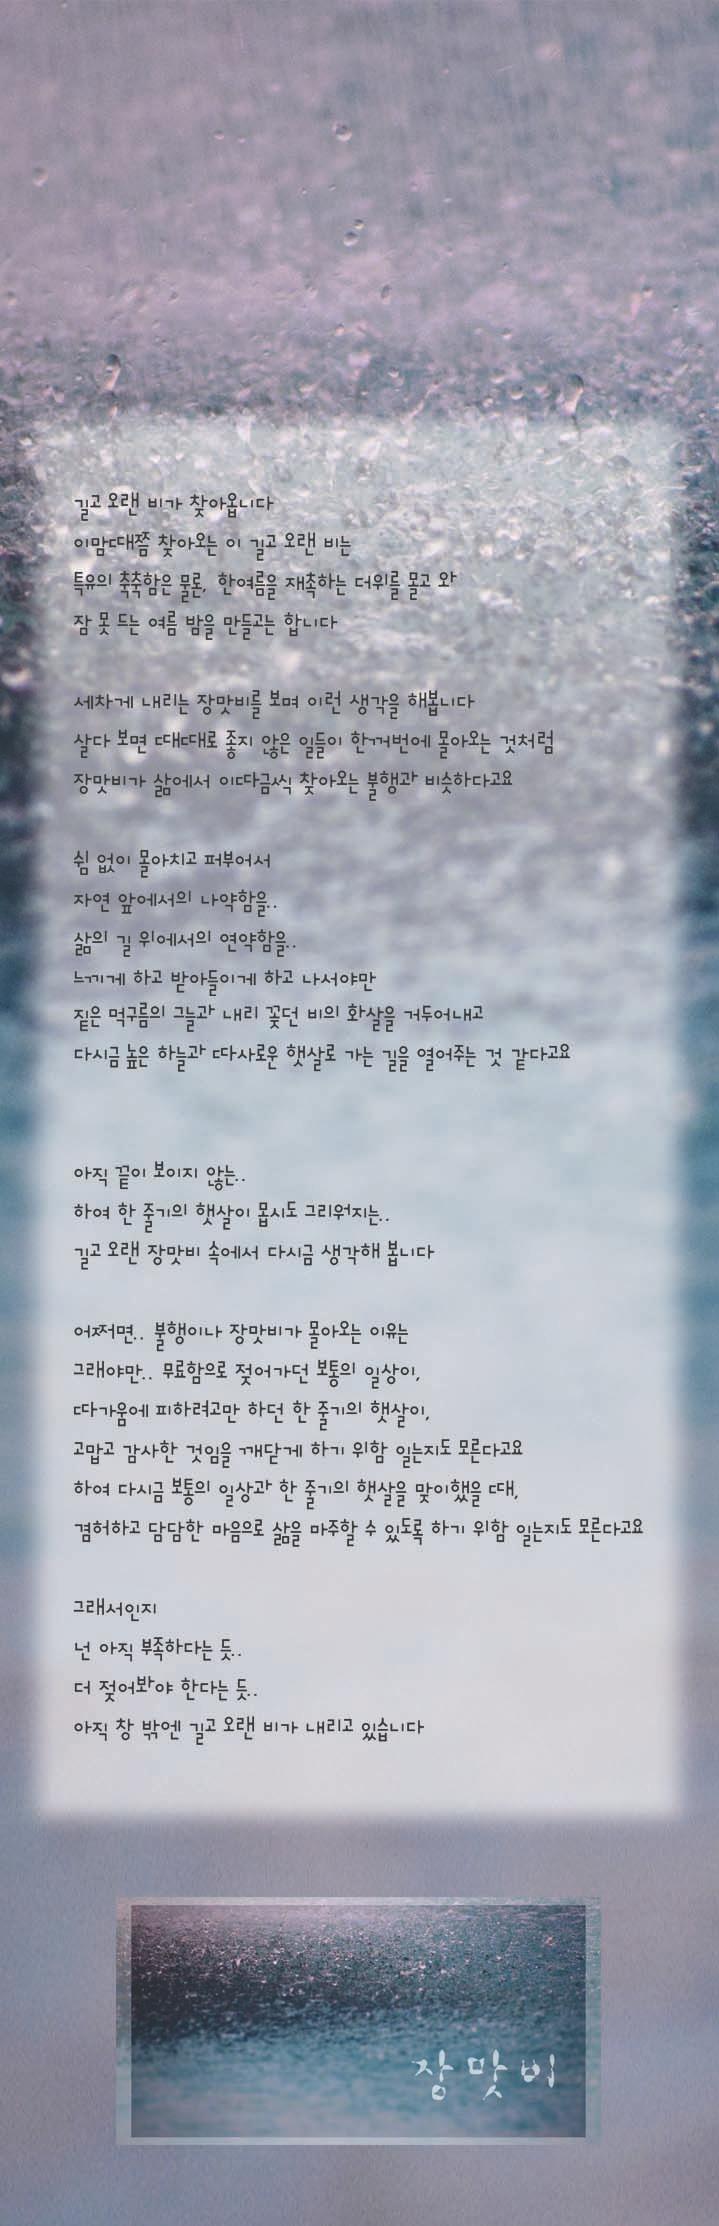 길고 오랜 비가 찾아옵니다
이맘때쯤 찾아오는 이 길고 오랜 비는
특유의 축축함은 물론, 한여름을 재촉하는 더위를 몰고 와
잠 못 드는 여름 밤을 만들고는 합니다
세차게 내리는 장맛비를 보며 이런 생각을 해봅니다
살다 보면 때때로 좋지 않은 일들이 한꺼번에 몰아오는 것처럼
장맛비가 삶에서 이따금씩 찾아오는 불행과 비슷하다고요
쉼 없이 몰아치고 퍼부어서
자연 앞에서의 나약함을..
삶의 길 위에서의 연약함을..
느끼게 하고 받아들이게 하고 나서야만
짙은 먹구름의 그늘과 내리 꽂던 비의 화살을 거두어내고
다시금 높은 하늘과 따사로운 햇살로 가는 길을 열어주는 것 같다고요
아직 끝이 보이지 않는..
하여 한 줄기의 햇살이 몹시도 그리워지는..
길고 오랜 장맛비 속에서 다시금 생각해 봅니다
어쩌면.. 불행이나 장맛비가 몰아오는 이유는
그래야만.. 무료함으로 젖어가던 보통의 일상이,
따가움에 피하려고만 하던 한 줄기의 햇살이,
고맙고 감사한 것임을 깨닫게 하기 위함 일는지도 모른다고요
하여 다시금 보통의 일상과 한 줄기의 햇살을 맞이했을 때,
겸허하고 담담한 마음으로 삶을 마주할 수 있도록 하기 위함 일는지도 모른다고요
그래서인지
넌 아직 부족하다는 듯..
더 젖어봐야 한다는 듯..
아직 창 밖엔 길고 오랜 비가 내리고 있습니다
장맛비